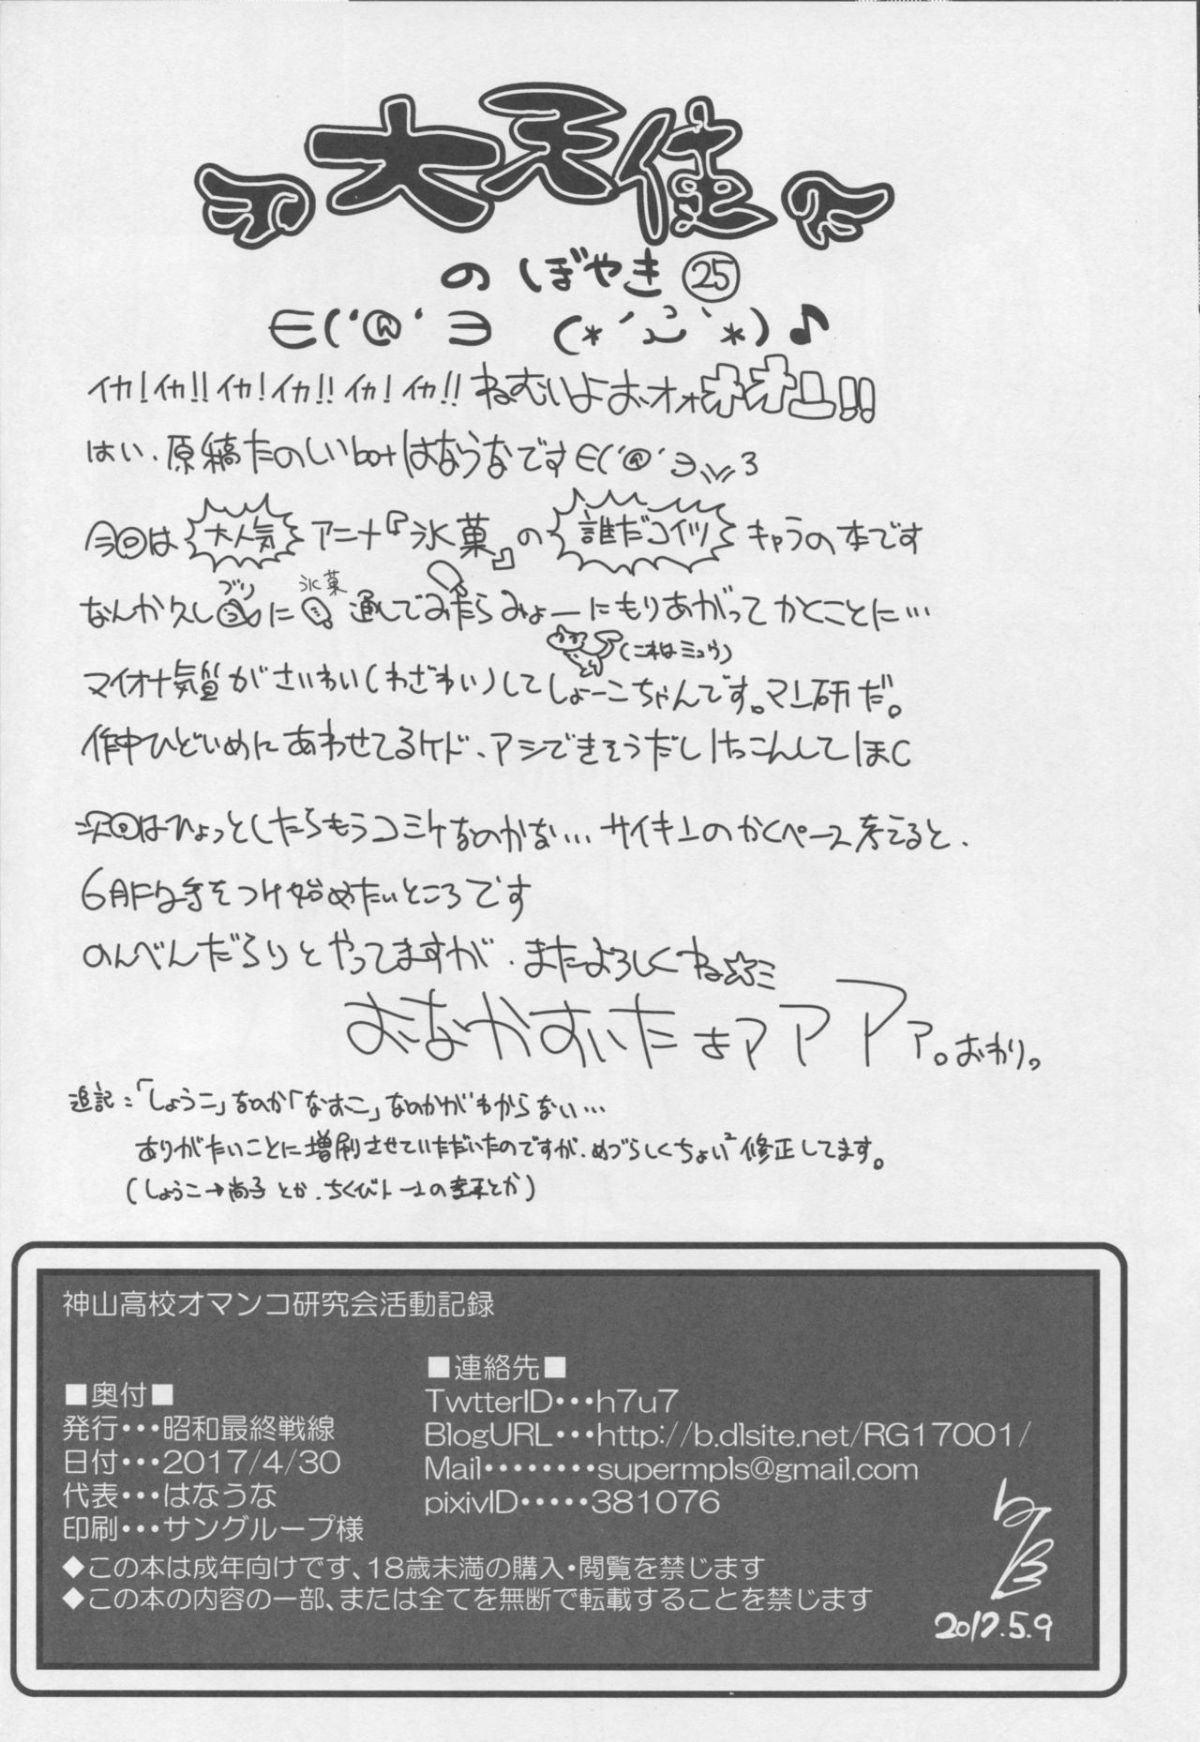 大天使
のぼやき㉕
∈('@'∋ (*´ω`*)♪
イカ!イカ!!イカ!イカ!!イカ!イカ!!ねむいよおオォオオー!!
はい、原稿たのしいbotはなうなです∈('@'∋
今回は大人気アニメ『氷菓』の誰だコイツキャラの本です
氷菓
なんか久しぶりに通しでみたらみょーにもりあがってかくことに…
(これはミュウ)
マイナー気質がさいわい(わざわい)してしょーこちゃんです。マン研だ。
作中ひどいめにあわせてるケド、アシできそうだしけっこんしてほC
次回はひょっとしたらもうコミケなのかな…サイキンのかくペース考えると、
6月下旬手をつけ始めたいところです
のんべんだらりとやってますが、またよろしくね☆ミ
おなかすいたよアアアア。おわり。
追記:「しょうこ」なのか「なおこ」なのかがわからない…
ありがたいことに増刷させていただいたのですが、めづらしくちょい²修正してます。
(しょうこ→尚子とか、ちくびトーンの追加とか)
神山高校オマンコ研究会活動記録
■奥付■
発行・・・昭和最終戦線
日付・・・2017/4/30
代表・・・はなうな
印刷・・・サングループ様
■連絡先■
TwtterID・・・h7u7
BlogURL・・・http://b.dlsite.net/RG17001/
Mail・・・・・・・・supermpls@gmail.com
pixivID・・・・・381076
◆この本は成年向けです、18歳未満の購入・閲覧を禁じます
◆この本の内容の一部、または全てを無断で転載することを禁じます
2017.5.9